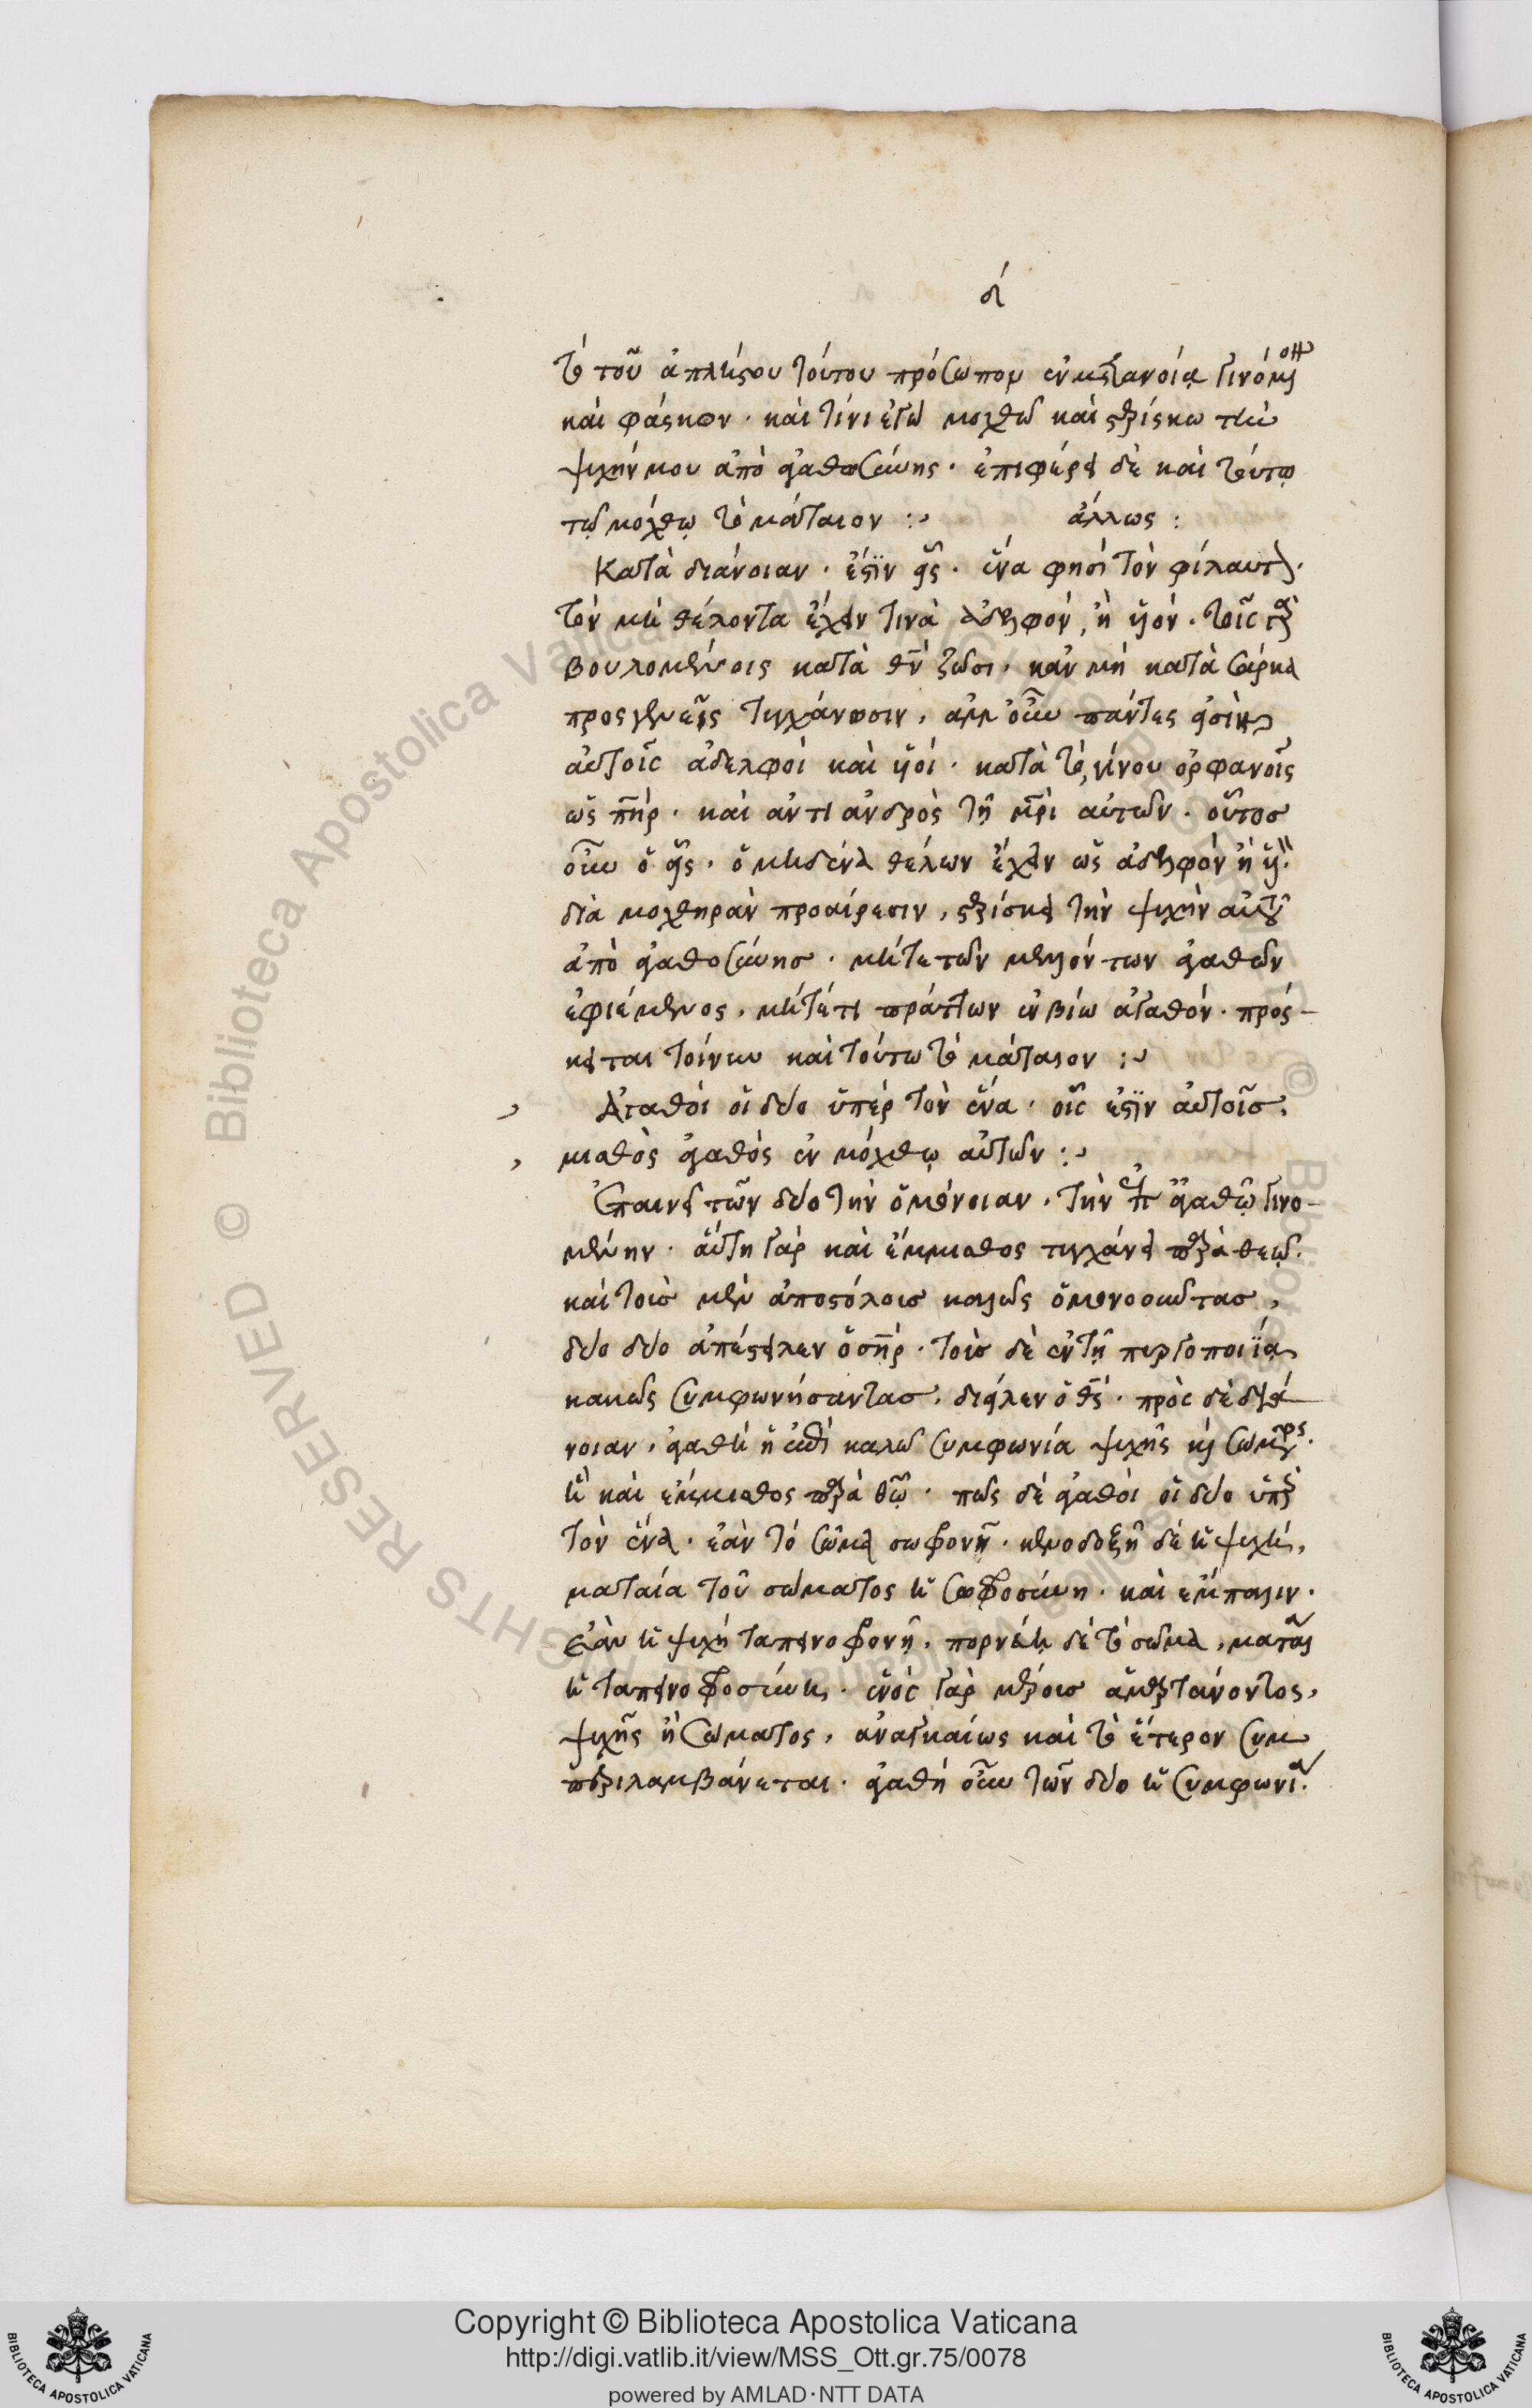 δ´
τὸ τοῦ ἀπλήστου τούτου πρόσωπον ἐν μετανοίᾳ γινόμενον
καὶ φάσκον · καὶ τίνι ἐγὼ μοχθῶ καὶ στερίσκω τὴν
ψυχήν μου ἀπὸ ἀγαθωσύνης · ἐπιφέρει δὲ καὶ τούτῳ
τῷ μόχθῳ τὸ μάταιον :~ ἄλλως :
Κατὰ διάνοιαν · ἐστὶν εἷς · ἕνα φησὶ τὸν φίλαυτον ·
τὸν μὴ θέλοντα ἔχειν τινὰ ἀδελφόν, ἢ υἱόν · τοῖς γὰρ
βουλομένοις κατὰ θν ζῶσι · κἂν μὴ κατὰ σάρκα
προσγενεῖς τυγχάνωσιν, ἀλλ' οὖν πάντες εἰσὶν
αὐτοῖς ἀδελφοὶ καὶ υἱοί · κατὰ τὸ, γίνου ὀρφανοῖς
ὡς πηρ · καὶ ἀντὶ ἀνδρὸς τῇ μρι αὐτῶν · οὗτος
οὖν ὁ εἷς · ὁ μηδένα θέλων ἔχειν ὡς ἀδελφὸν ἢ υἱόν ·
διὰ μοχθηρὰν προαίρεσιν, στερίσκει τὴν ψυχὴν αὐτοῦ
ἀπὸ ἀγαθοσύνης · μήτε τῶν μελλόντων ἀγαθῶν
ἐφιέμενος, μήτε τι πράττων ἐν βίω ἀγαθόν · πρόσ-
κειται τοίνυν καὶ τούτω τὸ μάταιον :~
Ἀγαθοὶ οἱ δύο ὑπὲρ τὸν ἕνα · οἷς ἐστὶν αὐτοῖς ·
μισθὸς ἀγαθὸς ἐν μόχθῳ αὐτῶν :~
Ἐπαινεῖ τῶν δύο τὴν ὁμόνοιαν, τὴν ἐπ' ἀγαθῷ γινο-
μένην · αὕτη γὰρ καὶ ἔμμισθος τυγχάνει παρὰ θεῷ ·
καὶ τοὺς μὲν ἀποστόλους καλῶς ὁμονοοῦντας,
δύο δύο ἀπέστειλεν ὁ σηρ · τοὺς δὲ ἐν τῇ πυργοποιΐᾳ
κακῶς συμφωνήσαντας, διεῖλεν ὁ θς · πρὸς δὲ διά
νοιαν, ἀγαθὴ ἡ ἐπὶ καλῶ συμφωνία ψυχῆς καὶ σώματος ·
ἣ καὶ ἔμμισθος παρὰ θῶ · πῶς δὲ ἀγαθοὶ οἱ δύο ὑπὲρ
τὸν ἕνα · ἐὰν τὸ σῶμα σωφρονῇ · κενοδοξῇ δὲ ἡ ψυχή,
ματαία τοῦ σώματος ἡ σωφροσύνη · καὶ ἔμπαλιν ·
ἐὰν ἡ ψυχὴ ταπεινοφρονῇ, πορνεύῃ δὲ τὸ σῶμα, ματαία
ἡ ταπεινοφροσύνη · ἑνὸς γὰρ μέρους ἁμαρτάνοντος,
ψυχῆς ἢ σώματος, ἀναγκαίως καὶ τὸ ἕτερον συμ
περιλαμβάνεται · ἀγαθὴ οὖν τῶν δύο ἡ συμφωνία ·
Copyright © Biblioteca Apostolica Vaticana
http://digi.vatlib.it/view/MSS_Ott.gr.75/0078
powered by AMLAD·NTT DATA